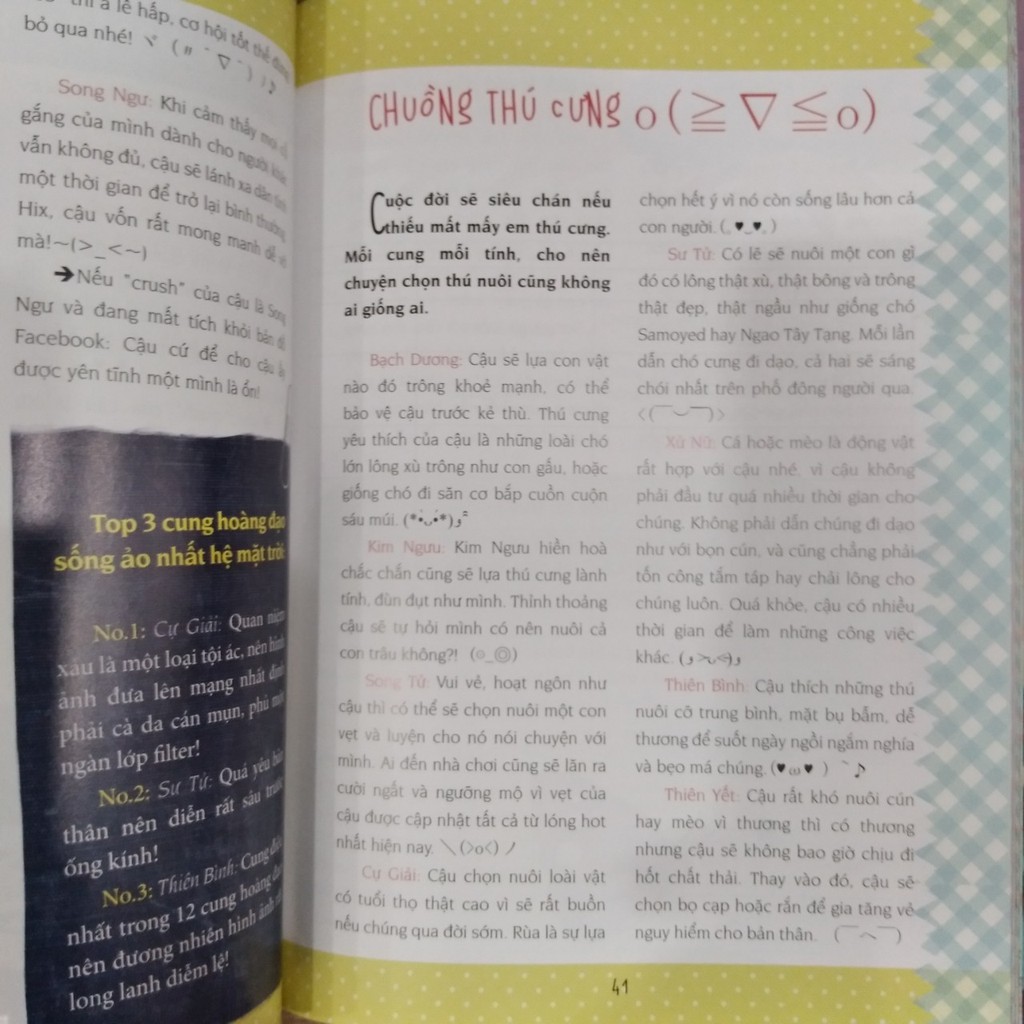 bỏ qua nhé! ヾ(〃^∇^)ﾉ♪
Song Ngư: Khi cảm thấy mọi cố
gắng của mình dành cho người khác
vẫn không đủ, cậu sẽ lánh xa dân tình
một thời gian để trở lại bình thường.
Hix, cậu vốn rất mong manh dễ vỡ
mà!~(>_<~)
➔Nếu "crush" của cậu là Song
Ngư và đang mất tích khỏi bản đồ
Facebook: Cậu cứ để cho cậu ấy
được yên tĩnh một mình là ổn!
Top 3 cung hoàng đạo
sống ảo nhất hệ mặt trời
No.1: Cự Giải: Quan niệm
xấu là một loại tội ác, nên hình
ảnh đưa lên mạng nhất định
phải cà da cán mụn, phủ một
ngàn lớp filter!
No.2: Sư Tử: Quá yêu bản
thân nên diễn rất sâu trước
ống kính!
No.3: Thiên Bình: Cung
nhất trong 12 cung hoàng đạo
nên đương nhiên hình ảnh
long lanh diễm lệ!
CHUỒNG THÚ CƯNG o(≧∇≦o)
Cuộc đời sẽ siêu chán nếu
thiếu mất mấy em thú cưng.
Mỗi cung mỗi tính, cho nên
chuyện chọn thú nuôi cũng không
ai giống ai.
Bạch Dương: Cậu sẽ lựa con vật
nào đó trông khoẻ mạnh, có thể
bảo vệ cậu trước kẻ thù. Thú cưng
yêu thích của cậu là những loài chó
lớn lông xù trông như con gấu, hoặc
giống chó đi săn cơ bắp cuồn cuộn
sáu múi. (*•̀ᴗ•́*)و ̑̑
Kim Ngưu: Kim Ngưu hiền hoà
chắc chắn cũng sẽ lựa thú cưng lành
tính, đùn đụt như mình. Thỉnh thoảng
cậu sẽ tự hỏi mình có nên nuôi cả
con trâu không?! (⊙_◎)
Song Tử: Vui vẻ, hoạt ngôn như
cậu thì có thể sẽ chọn nuôi một con
vẹt và luyện cho nó nói chuyện với
mình. Ai đến nhà chơi cũng sẽ lăn ra
cười ngất và ngưỡng mộ vì vẹt của
cậu được cập nhật tất cả từ lóng hot
nhất hiện nay. ＼(>o<)ノ
Cự Giải: Cậu chọn nuôi loài vật
có tuổi thọ thật cao vì sẽ rất buồn
nếu chúng qua đời sớm. Rùa là sự lựa
chọn hết ý vì nó còn sống lâu hơn cả
con người. (｡♥‿♥｡)
Sư Tử: Có lẽ sẽ nuôi một con gì
đó có lông thật xù, thật bông và trông
thật đẹp, thật ngầu như giống chó
Samoyed hay Ngao Tây Tạng. Mỗi lần
dẫn chó cưng đi dạo, cả hai sẽ sáng
chói nhất trên phố đông người qua.
<(￣︶￣)>
Xử Nữ: Cá hoặc mèo là động vật
rất hợp với cậu nhé, vì cậu không
phải đầu tư quá nhiều thời gian cho
chúng. Không phải dẫn chúng đi dạo
như với bọn cún, và cũng chẳng phải
tốn công tắm táp hay chải lông cho
chúng luôn. Quá khỏe, cậu có nhiều
thời gian để làm những công việc
khác. (و ˃̵ᴗ˂̵)و
Thiên Bình: Cậu thích những thú
nuôi cỡ trung bình, mặt bụ bẫm, dễ
thương để suốt ngày ngồi ngắm nghía
và bẹo má chúng. (♥ω♥ ) ~♪
Thiên Yết: Cậu rất khó nuôi cún
hay mèo vì thương thì có thương
nhưng cậu sẽ không bao giờ chịu đi
hốt chất thải. Thay vào đó, cậu sẽ
chọn bọ cạp hoặc rắn để gia tăng vẻ
nguy hiểm cho bản thân. (￣へ￣)
41